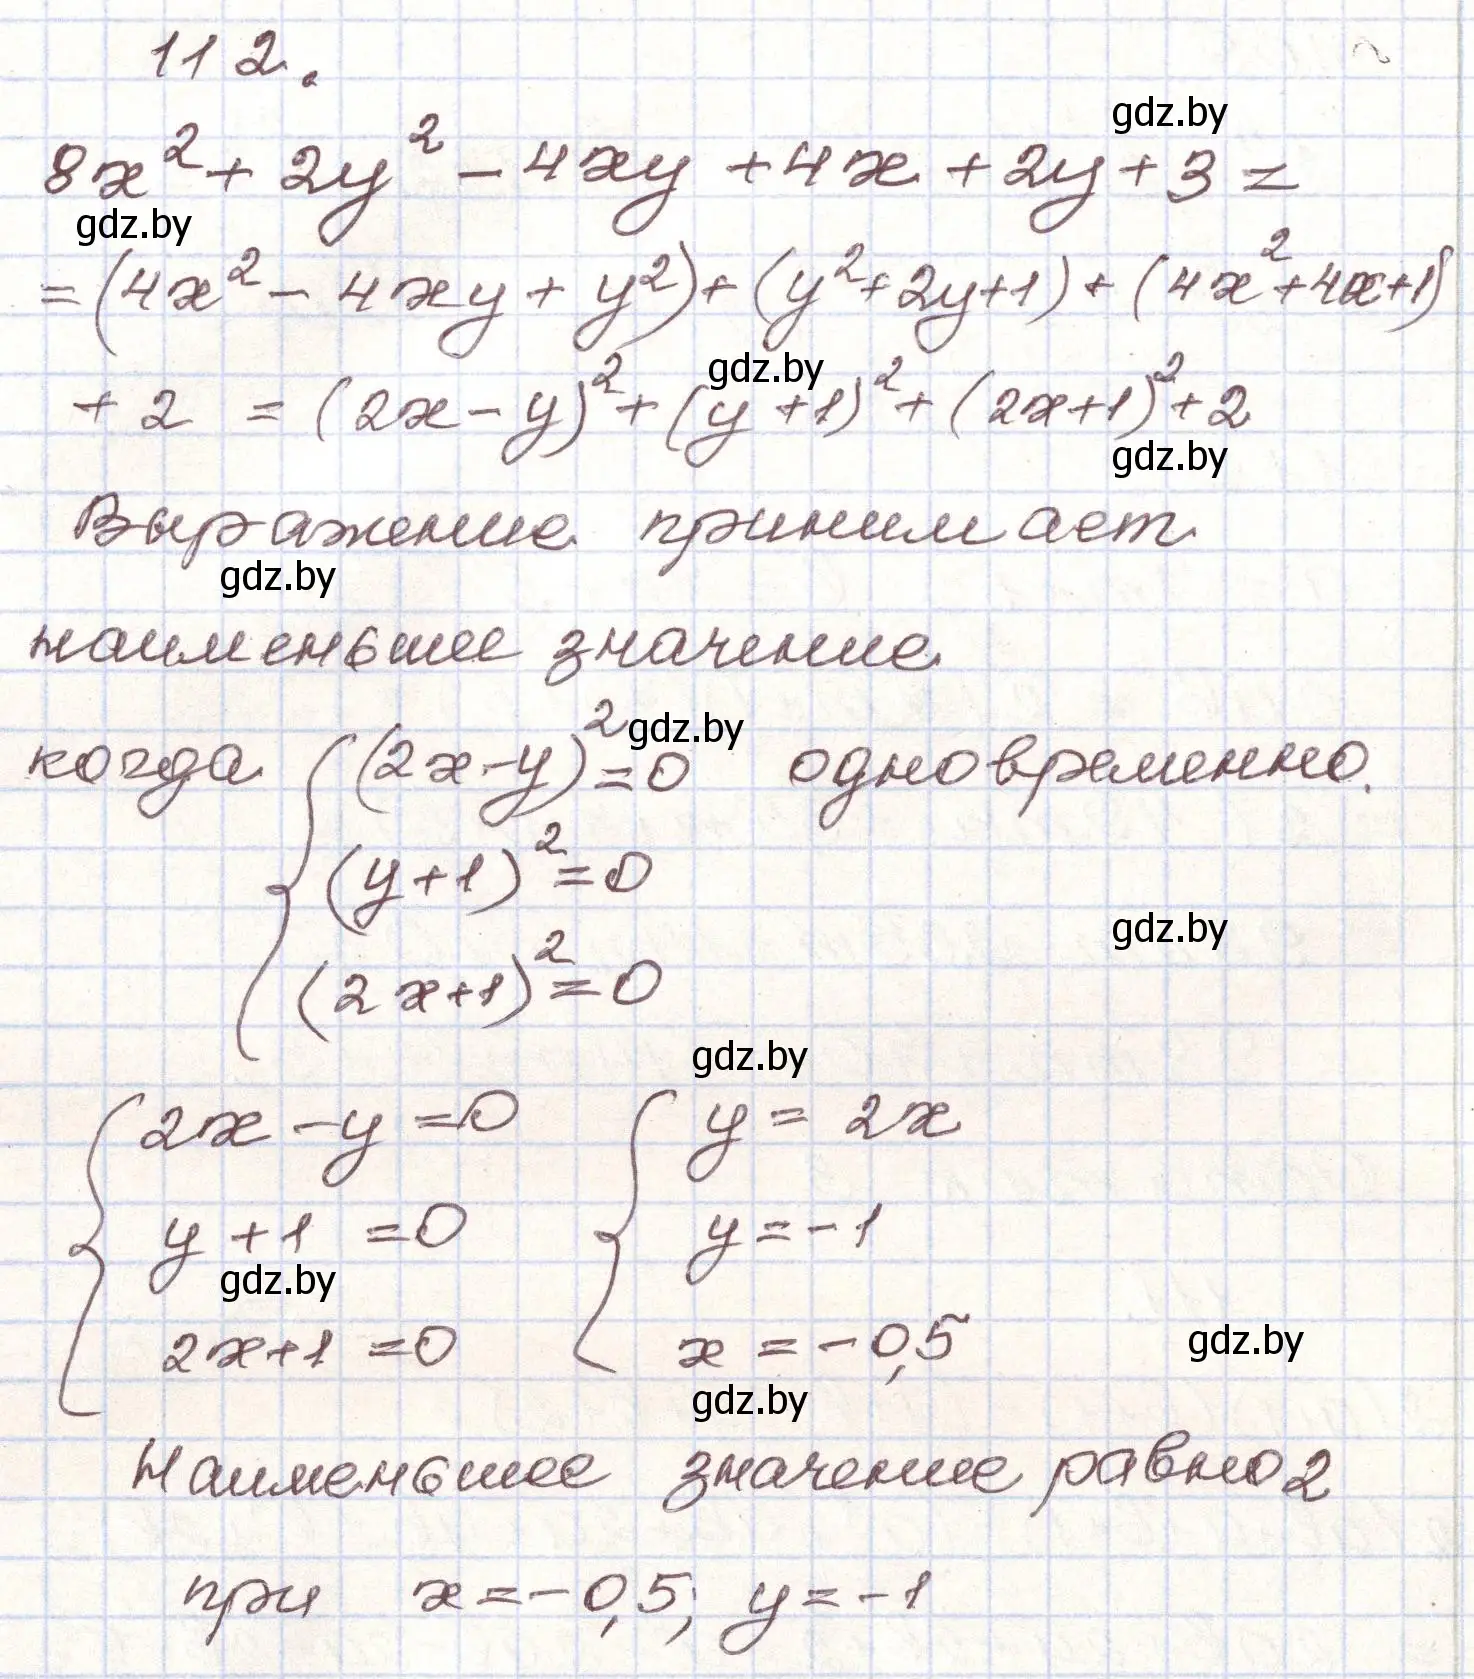 112.
gdz.by
8x² + 2y² - 4xy + 4x + 2y + 3 =
gdz.by
= (4x² - 4xy + y²) + (y² + 2y + 1) + (4x² + 4x + 1)
gdz.by
+ 2 = (2x - y)² + (y + 1)² + (2x + 1)² + 2
gdz.by
Выражение принимает
gdz.by
наименьшее значение
gdz.by
когда { (2x - y)² = 0 одновременно.
(y + 1)² = 0
gdz.by
(2x + 1)² = 0
gdz.by
{ 2x - y = 0 { y = 2x
y + 1 = 0 y = -1
gdz.by
2x + 1 = 0 x = -0,5
gdz.by
gdz.by
Наименьшее значение равно 2
при x = -0,5; y = -1